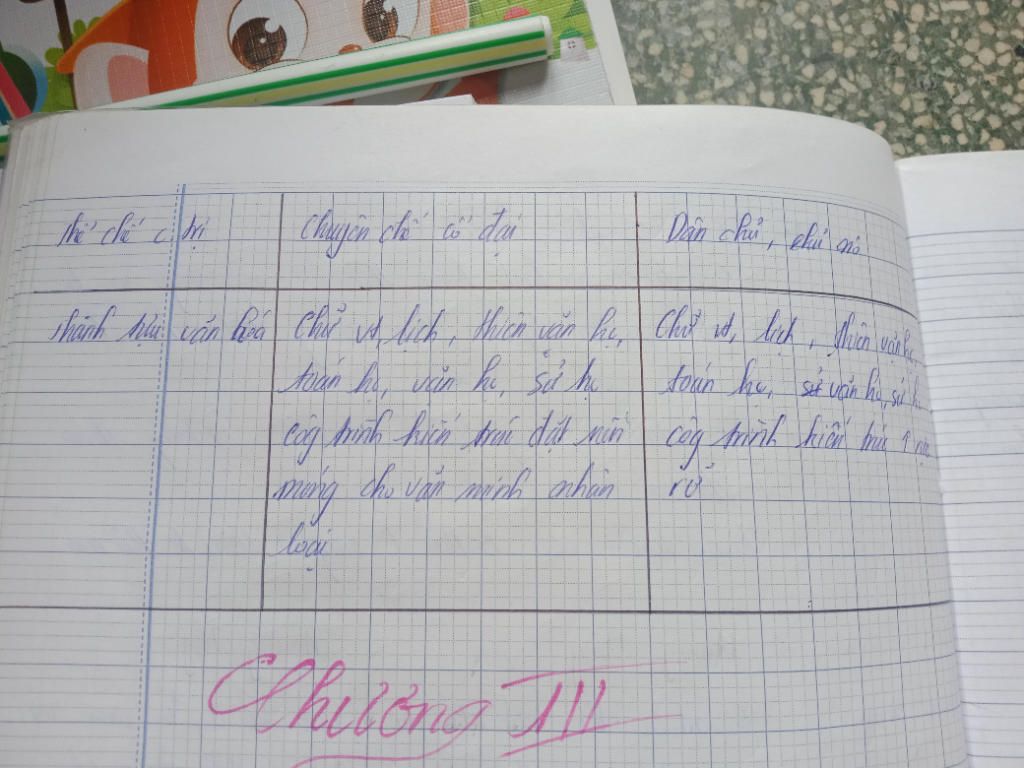 thể chế c trị
Chuyên chế cổ đại
Dân chủ, chủ nô
thành tựu văn hoá
Chữ vt, lịch, thiên văn họ,
toán họ, văn họ, sử họ
côg trình kiến trúc đặt nền
móng cho văn minh nhân
loại
Chữ vt, lịch, thiên văn họ,
toán họ, văn họ, sử
côg trình kiến trúc
rỡ
Chương III